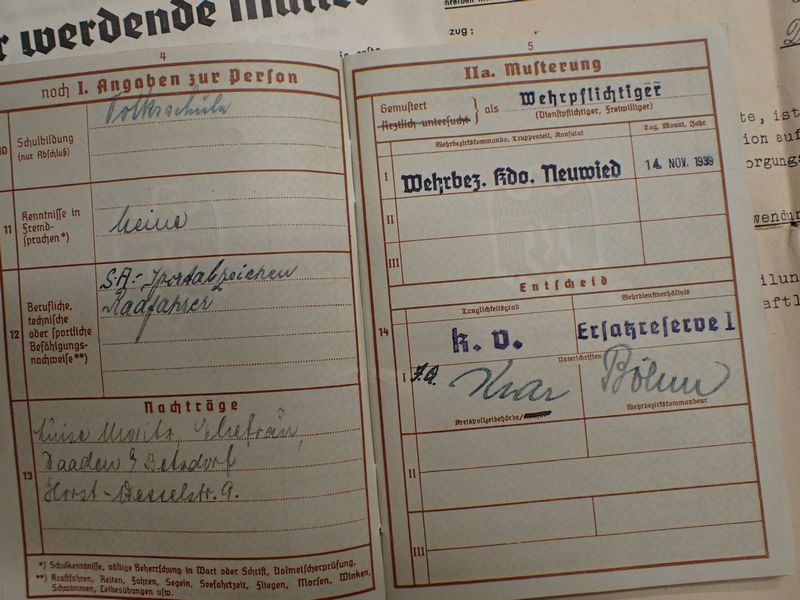 r werdende Mütter
zug:
te, ist
ion auf
orgungs
wendun
ilun
aftl
4
noch I. Angaben zur Person
10 Schulbildung
(nur Abschluß)
Volksschule
11 Kenntnisse in
Fremd-
sprachen*)
keine
12 Berufliche,
technische
oder sportliche
Befähigungs-
nachweise**)
S.A.- Sportabzeichen
Radfahrer
Nachträge
13
Luise Moritz, Ehefrau,
Daaden b/ Betzdorf
Horst-Wesselstr. 9.
*) Schulkenntnisse, völlige Beherrschung in Wort oder Schrift, Dolmetscherprüfung.
**) Kraftfahren, Reiten, Fahren, Segeln, Seefahrtzeit, Fliegen, Morsen, Winken,
Schwimmen, Leibesübungen usw.
5
IIa. Musterung
Gemustert
Ärztlich untersucht
als Wehrpflichtiger
(Dienstpflichtiger, Freiwilliger)
Wehrbezirkskommando, Truppenteil, Konsulat
Tag, Monat, Jahr
I Wehrbez. Kdo. Neuwied 14. NOV. 1939
II
III
Entscheid
Tauglichkeitsgrad
Wehrdienstverhältnis
14
k. v.
Ersatzreserve I
Unterschriften
I
Böhm
Kreispolizeibehörde/
Wehrbezirkskommandeur
II
III